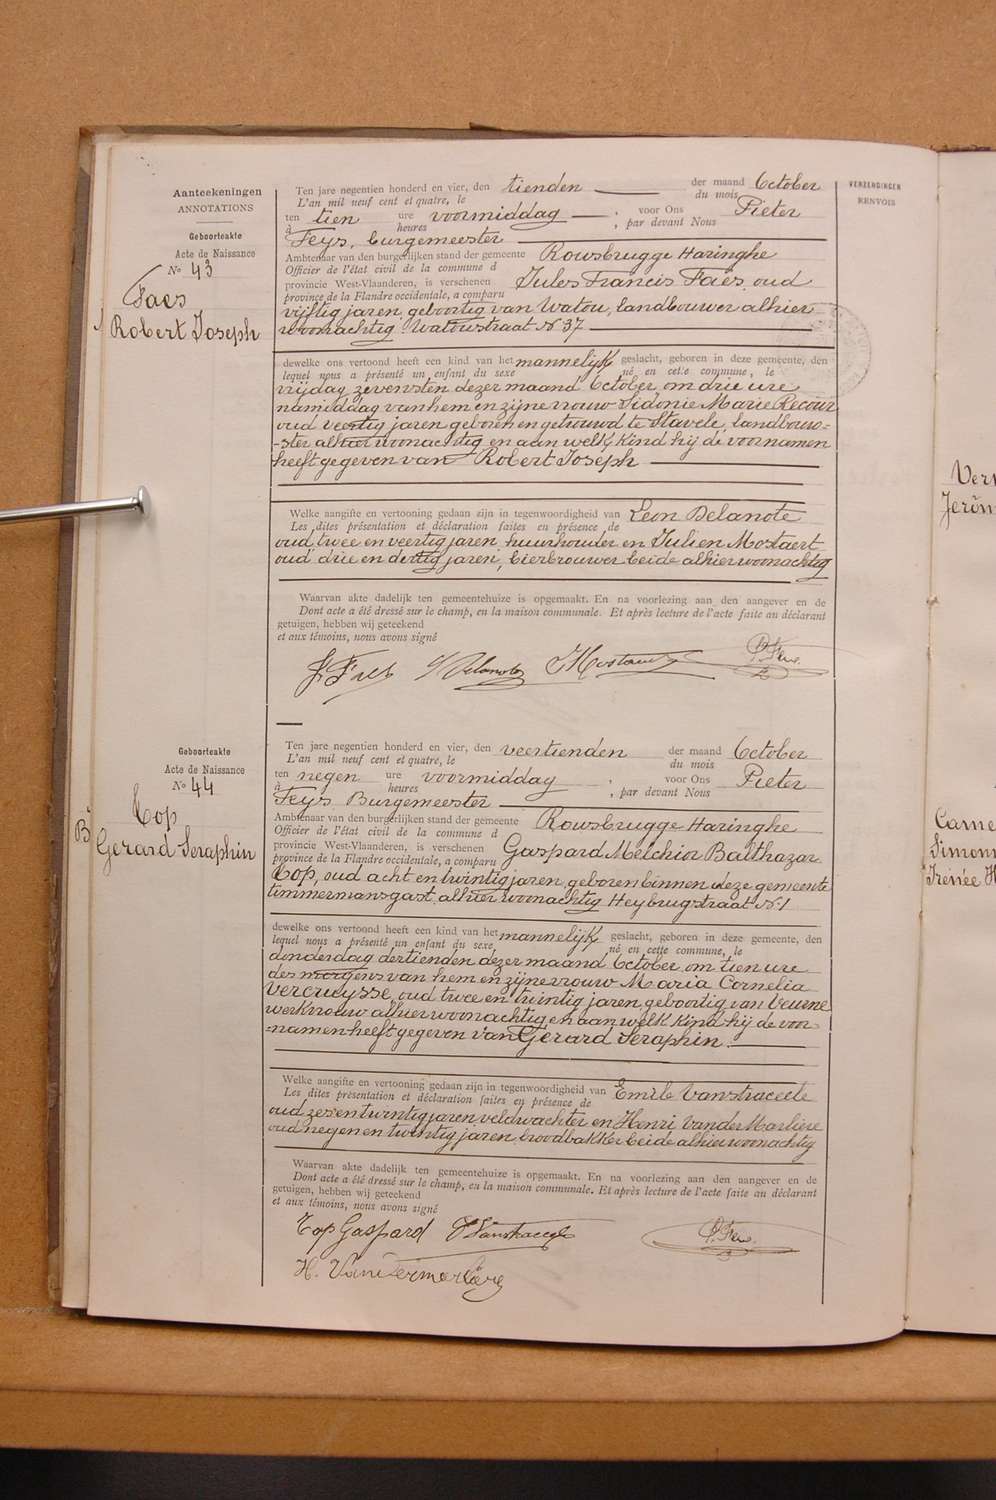 Aanteekeningen
ANNOTATIONS
Geboorteakte
Acte de Naissance
No 43
Faes
Robert Joseph
Ten jare negentien honderd en vier, den tienden der maand October
L'an mil neuf cent et quatre, le du mois
ten tien ure voormiddag ; voor Ons Pieter
à heures , par devant Nous
Feys, burgemeester
Ambtenaar van den burgerlijken stand der gemeente Rousbrugge Haringhe
Officier de l'état civil de la commune d
provincie West-Vlaanderen, is verschenen Jules Francis Faës, oud
province de la Flandre occidentale, a comparu
vijftig jaren, geboortig van Watou, landbouwer alhier
woonachtig Watoustraat No 37
dewelke ons vertoond heeft een kind van het mannelijk geslacht, geboren in deze gemeente, den
lequel nous a présenté un enfant du sexe né en cette commune, le
vrijdag zevensten dezer maand October, om drie ure
namiddag van hem en zijne vrouw Sidonie Marie Recour
oud veertig jaren geboren en getrouwd te Stavele, landbouw-
-ster alhier woonachtig en aan welk kind hij de voornamen
heeft gegeven van Robert Joseph
Welke aangifte en vertooning gedaan zijn in tegenwoordigheid van Leon Delanote
Les dites présentation et déclaration faites en présence de
oud twee en veertig jaren, huurhouder en Julien Mostaert
oud drie en dertig jaren, bierbrouwer beide alhier woonachtig
Waarvan akte dadelijk ten gemeentehuize is opgemaakt. En na voorlezing aan den aangever en de
Dont acte a été dressé sur le champ, en la maison communale. Et après lecture de l'acte faite au déclarant
getuigen, hebben wij geteekend
et aux témoins, nous avons signé
J Faes L Delanote J Mostaert P. Feys
Geboorteakte
Acte de Naissance
No 44
B
Top
Gerard Seraphin
Ten jare negentien honderd en vier, den veertienden der maand October
L'an mil neuf cent et quatre, le du mois
ten negen ure voormiddag ; voor Ons Pieter
à heures , par devant Nous
Feys Burgemeester
Ambtenaar van den burgerlijken stand der gemeente Rousbrugge Haringhe
Officier de l'état civil de la commune d
provincie West-Vlaanderen, is verschenen Gaspard Melchior Balthazar
province de la Flandre occidentale, a comparu
Top, oud acht en twintig jaren, geboren binnen deze gemeente
timmermansgast, alhier woonachtig Heybrugstraat No 1
dewelke ons vertoond heeft een kind van het mannelijk geslacht, geboren in deze gemeente, den
lequel nous a présenté un enfant du sexe né en cette commune, le
donderdag dertienden dezer maand October, om tien ure
des morgens van hem en zijne vrouw Maria Cornelia
Vercruysse, oud twee en twintig jaren, geboortig van Veurne
werkvrouw alhier woonachtig en aan welk kind hij de voor-
-namen heeft gegeven van Gerard Seraphin.
Welke aangifte en vertooning gedaan zijn in tegenwoordigheid van Emile Vanstraceele
Les dites présentation et déclaration faites en présence de
oud zes en twintig jaren, veldwachter en Henri Vander Marliere
oud negen en twintig jaren, broodbakker beide alhier woonachtig
Waarvan akte dadelijk ten gemeentehuize is opgemaakt. En na voorlezing aan den aangever en de
Dont acte a été dressé sur le champ, en la maison communale. Et après lecture de l'acte faite au déclarant
getuigen, hebben wij geteekend
et aux témoins, nous avons signé
Top Gaspard E Vanstraceele P. Feys
H. Vandermarliere
VERZENDINGEN
RENVOIS
Jerôm
Came
Simonn
Irenée H